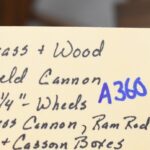 ass + Wood
eld Cannon
1/4" - Wheels
A360
ss Cannon, Ram Rod
+ Casson Boxes